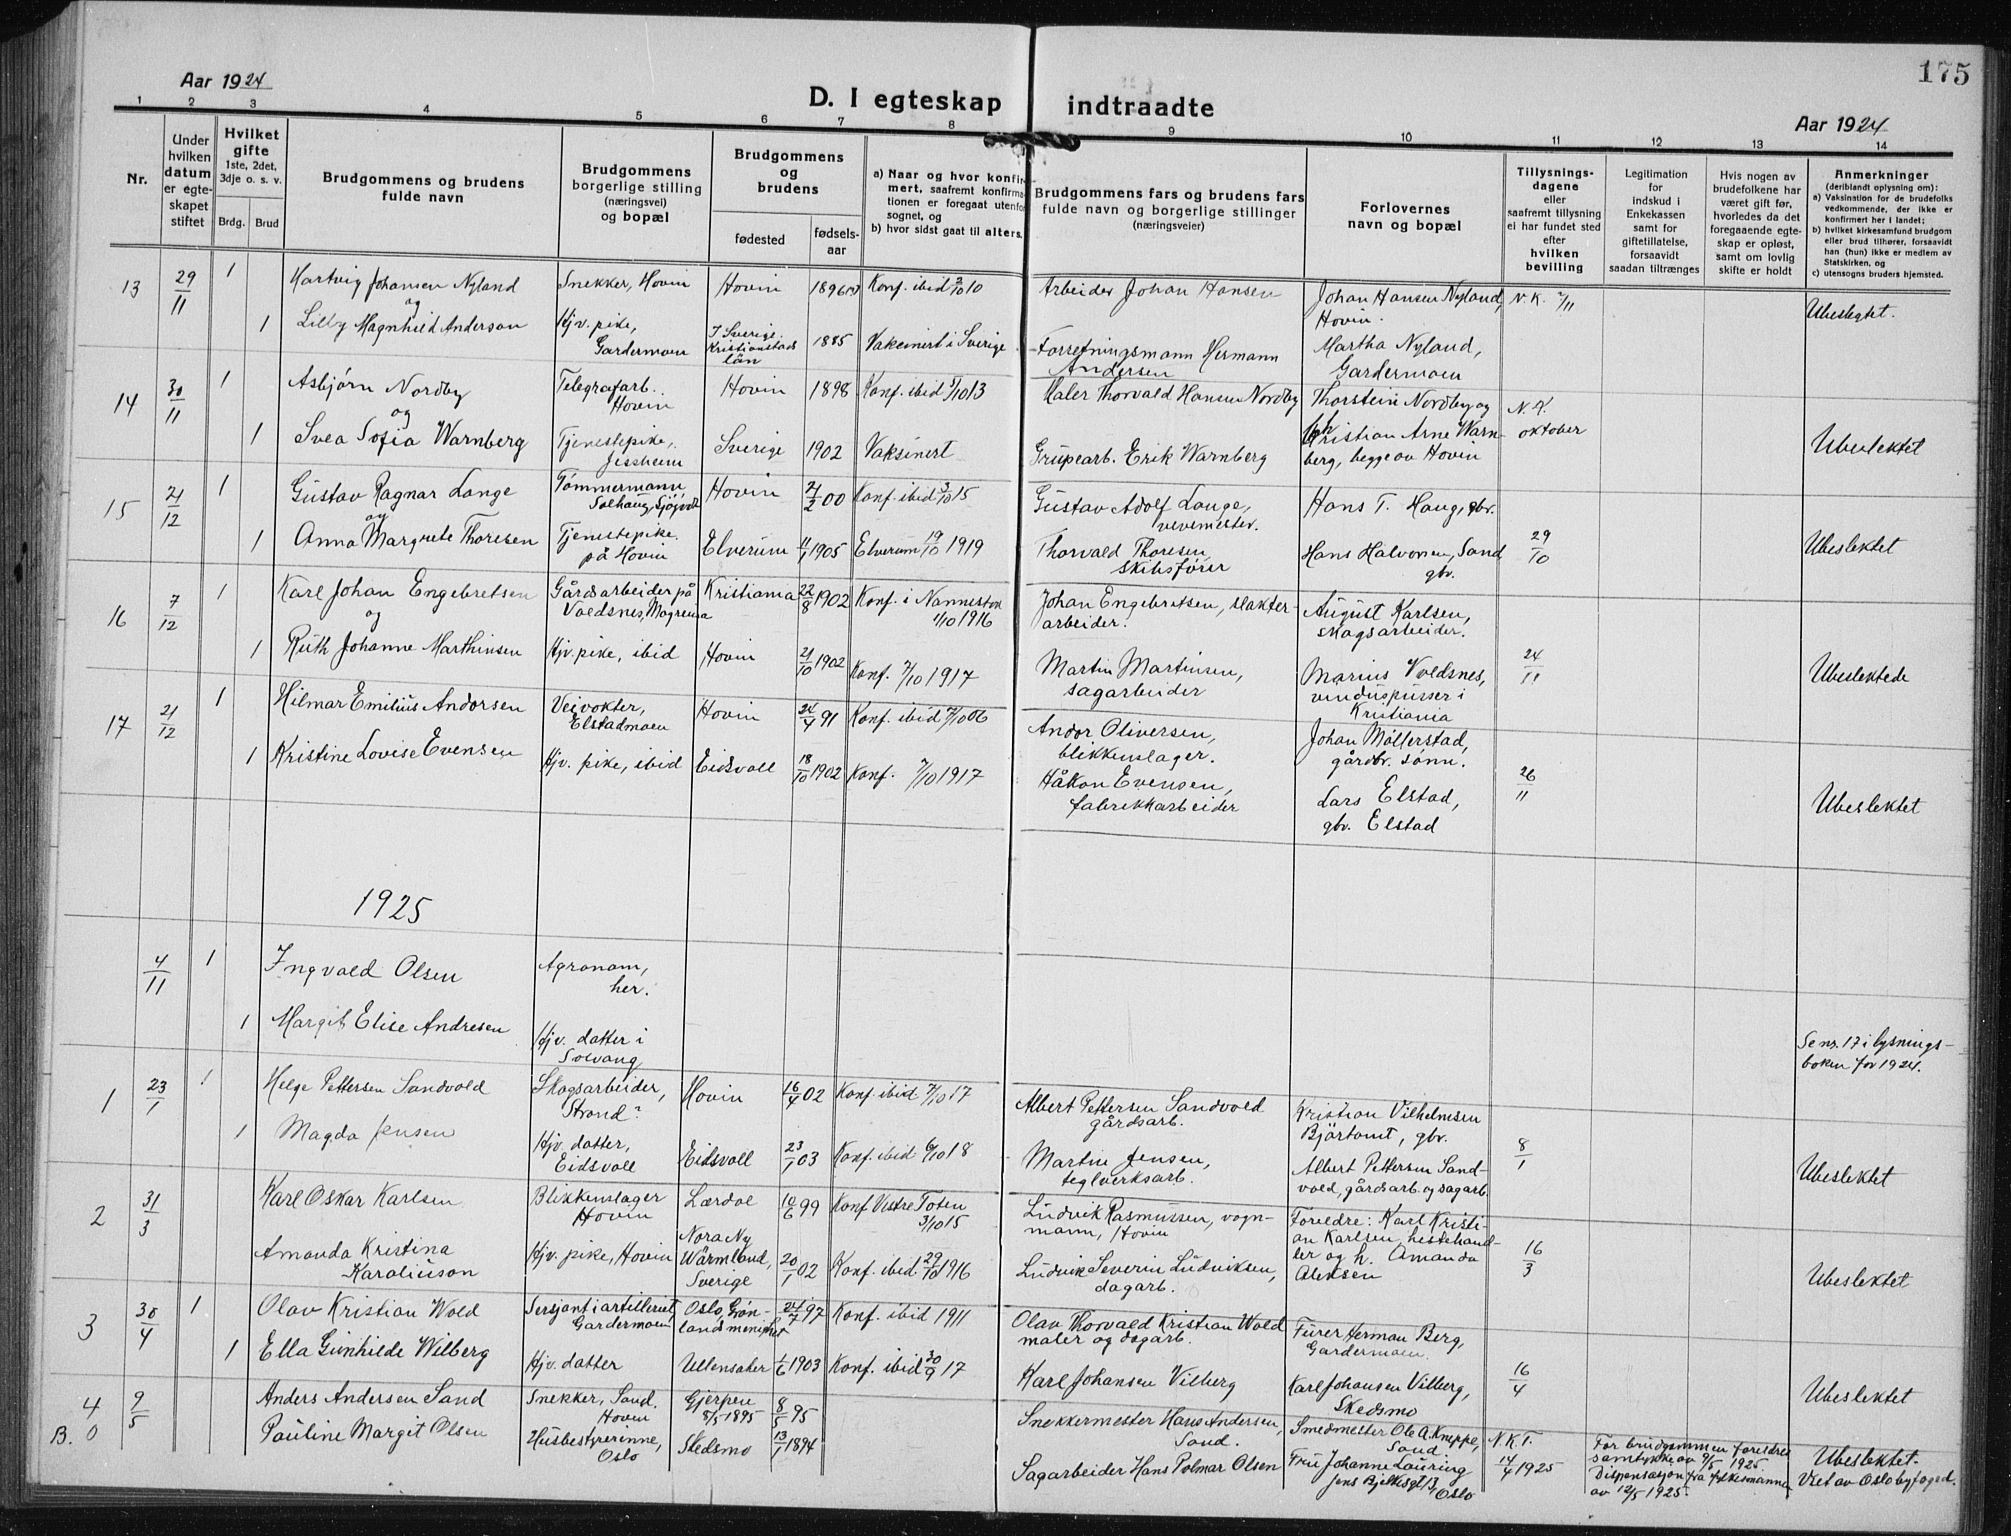 175
Aar 1924
D. I egteskap indtraadte
Aar 1924
1 2 3 4 5 6 7 8 9 10 11 12 13 14
Nr.
Under hvilken datum er egteskapet stiftet
Hvilket gifte 1ste, 2det, 3dje o. s. v.
Brdg. Brud
Brudgommens og brudens fulde navn
Brudgommens borgerlige stilling (næringsvei) og bopæl
Brudgommens og brudens
fødested fødselsaar
a) Naar og hvor konfirmert, saafremt konfirmationen er foregaat utenfor sognet, og
b) hvor sidst gaat til alters.
Brudgommens fars og brudens fars fulde navn og borgerlige stillinger (næringsveier)
Forlovernes navn og bopæl
Tillysningsdagene eller saafremt tillysning ei har fundet sted efter hvilken bevilling
Legitimation for indskud i Enkekassen samt for giftetillatelse, forsaavidt saadan tiltrænges
Hvis nogen av brudefolkene har været gift før, hvorledes da det foregaaende egteskap er opløst, samt om lovlig skifte er holdt
Anmerkninger (deriblandt oplysning om):
a) Vaksination for de brudefolks vedkommende, der ikke er konfirmert her i landet;
b) hvilket kirkesamfund brudgom eller brud tilhører, forsaavidt han (hun) ikke er medlem av Statskirken, og
c) utensogns bruders hjemsted.
13 29/11 1 Hartvig Johansen Nyland Snekker, Hovin Hovin 1896 Konf. ibid 2/10 10 Arbeider Johan Hansen Johan Hansen Nyland, Hovin. N.K. 2/11 Ubeslegtet.
og
1 Lilly Magnhild Anderson Hjv. pike, Gardermoen I Sverige. Kristianstads län 1885 Vakcinert i Sverige Forretningsmann Hermann Andersen Martha Nyland, Gardermoen
14 30/11 1 Asbjørn Nordby Telegrafarb. Hovin Hovin 1898 Konf. ibid 5/10 13 Maler Thorvald Hansen Nordby Thorstein Nordby og N.K. oktober
og
1 Svea Sofia Warnberg Tjenestepike, Jessheim Sverige 1902 Vaksinert Grupearb. Erik Warnberg Kristian Arne Warnberg, begge av Hovin Ubeslektet
15 21/12 1 Gustav Ragnar Lange Tømmermann Solhaug, Hovin 21/2 00 Konf. ibid 3/10 15 Gustav Adolf Lange, vevemester. Hans T. Haug, gbr.
og
1 Anna Margrete Thoresen Tjenestepike. på Hovin Elverum 11/1 1905 Elverum 19/10 1919 Thorvald Thoresen, skibsfører Hans Halvorsen, Sand gbr. 29/10 Ubeslektet
16 7/12 1 Karl Johan Engebretsen Gårdsarbeider på Voldsnes, Mogreina Kristiania 22/8 1902 Konf. i Nannestad 1/10 1916 Johan Engebretsen, slakterarbeider. August Karlsen, skogsarbeider.
og
1 Ruth Johanne Marthinsen Hjv. pike, ibid Hovin 21/10 1902 Konf. 7/10 1917 Martin Martinsen, sagarbeider Marius Voldsnes, vinduspusser i Kristiania 24/11 Ubeslektede
17 21/12 1 Hilmar Emilius Andorsen Veivokter, Elstadmoen Hovin 24/4 91 Konf. ibid 7/10 06 Andor Oliversen, blikkenslager. Johan Møllerstad, gårdbr. sønn.
1 Kristine Lovise Evensen Hjv. pike, ibid Eidsvoll 18/10 1902 Konf. 7/10 1917 Håkon Evensen, fabrikkarbeider Lars Elstad, gbr. Elstad 26/11 Ubeslektet
1925
4/11 1 Ingvald Olsen Agronom, her.
1 Margit Elise Andresen Hjv. datter i Solvang Se nr. 17 i lysningsboken for 1924.
1 23/1 1 Helge Pettersen Sandvold Skogsarbeider, Strand? Hovin 16/4 02 Konf. ibid 7/10 17 Albert Pettersen Sandvold gårdsarb. Kristian Vilhelmsen Bjørtomt, gbr.
1 Magda Jensen Hjv. datter, Eidsvoll Eidsvoll 23/1 03 Konf. ibid 6/10 18 Martin Jensen, teglverksarb. Albert Pettersen Sandvold, gårdsarb. og sagarb. 8/1 Ubeslektet
2 31/3 Karl Oskar Karlsen Blikkenslager Hovin Lærdal 10/6 99 Konf Vestre Toten 3/10 15 Ludvik Rasmussen, vognmann, Hovin Foreldre: Karl Kristian Karlsen, hestehandler og h. Amanda Aleksen
Amanda Kristina Karoliuson Hjv. pike, Hovin Nora Ny Wärmland, Sverige 20/1 02 Konf. ibid 29/10 1916 Ludvik Severin Ludviksen, dagarb. 16/3 Ubeslektet
3 30/4 1 Olav Kristian Wold Sersjant i artilleriet, Gardermoen Oslo, Grønlands menighet 24/7 97 Konf. ibid 1911 Olav Thorvald Kristian Wold maler og dagarb. Furer Herman Berg, Gardermoen.
1 Ella Gunhilde Wilberg Hjv. datter Ullensaker 1/6 1903 Konf. ibid 30/9 17 Karl Johansen Vilberg Karl Johansen Vilberg, Skedsmo 16/4 Ubeslektet
4 9/5 Anders Andersen Sand Snekker, Sand, Hovin Gjerpen 8/5 1895 8/5 95 Snekkermester Hans Andersen, Sand. Smedmester Ole A. Kneppe, Sand N.K.T. 14/4 1925 For brudgommen foreldres samtykke av 9/5 1925 Dispensasjon fra fylkesmannen av 12/5 1925. Ubeslektet. Viet av Oslo byfoged.
B. 0 Pauline Margit Olsen Husbestyrerinne, Oslo Skedsmo 13/1 1894 Sagarbeider Hans Polmar Olsen Fru Johanne Lauring Jens Bjelkesgt 13, Oslo